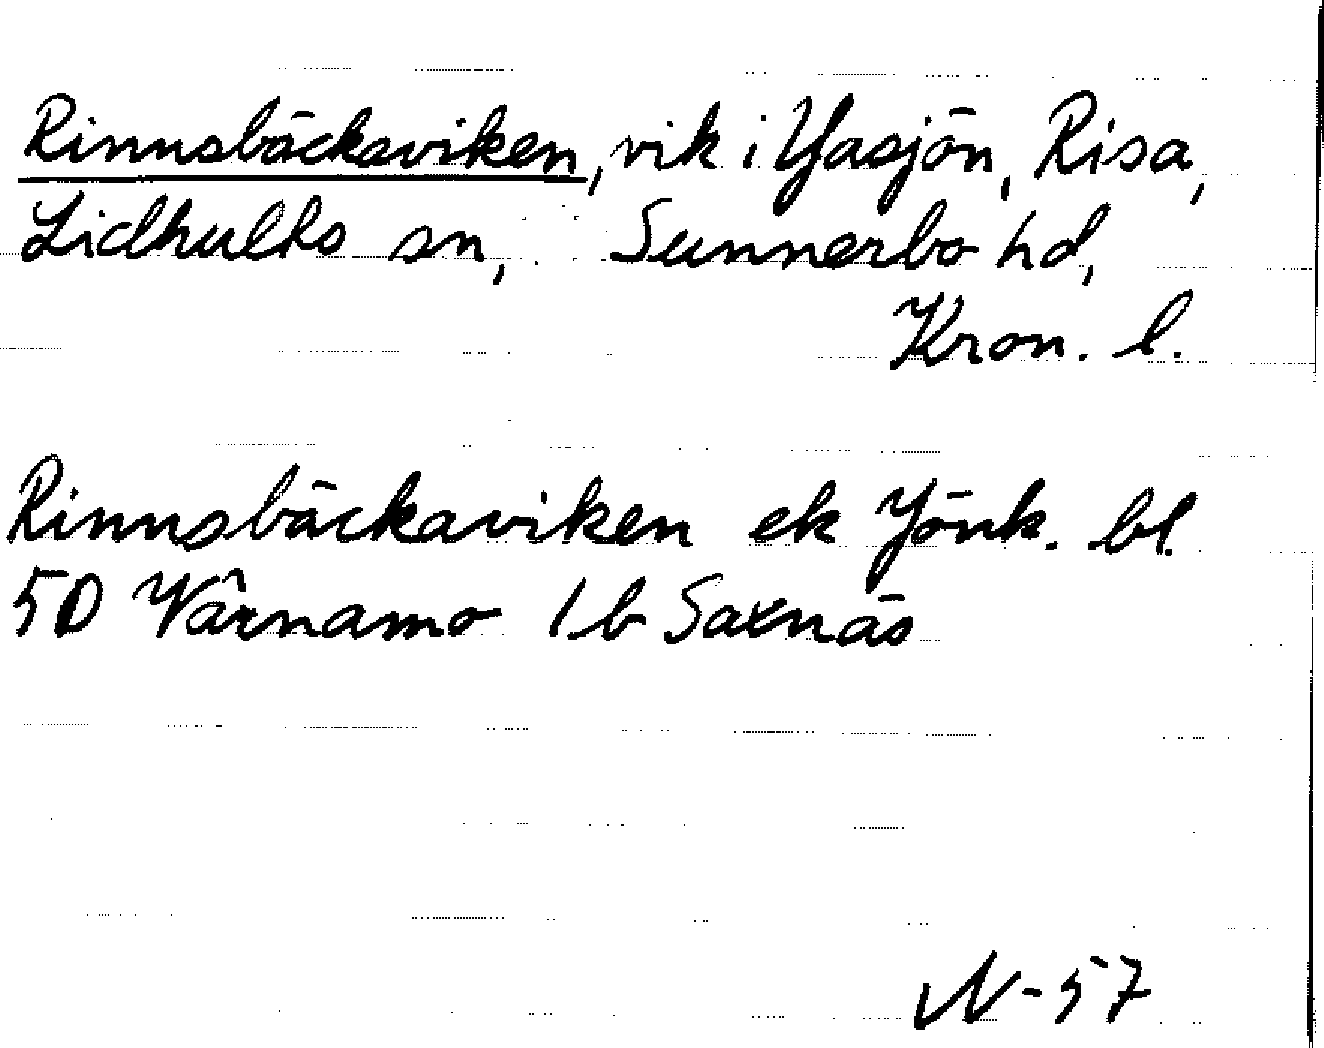 Rinnsbäckaviken, vik i Yasjön, Risa,
Lidhults sn, Sunnerbo hd,
Kron. l.
Rinnsbäckaviken ek Jönk. bl.
5D Värnamo 1b Saxnäs
N-57